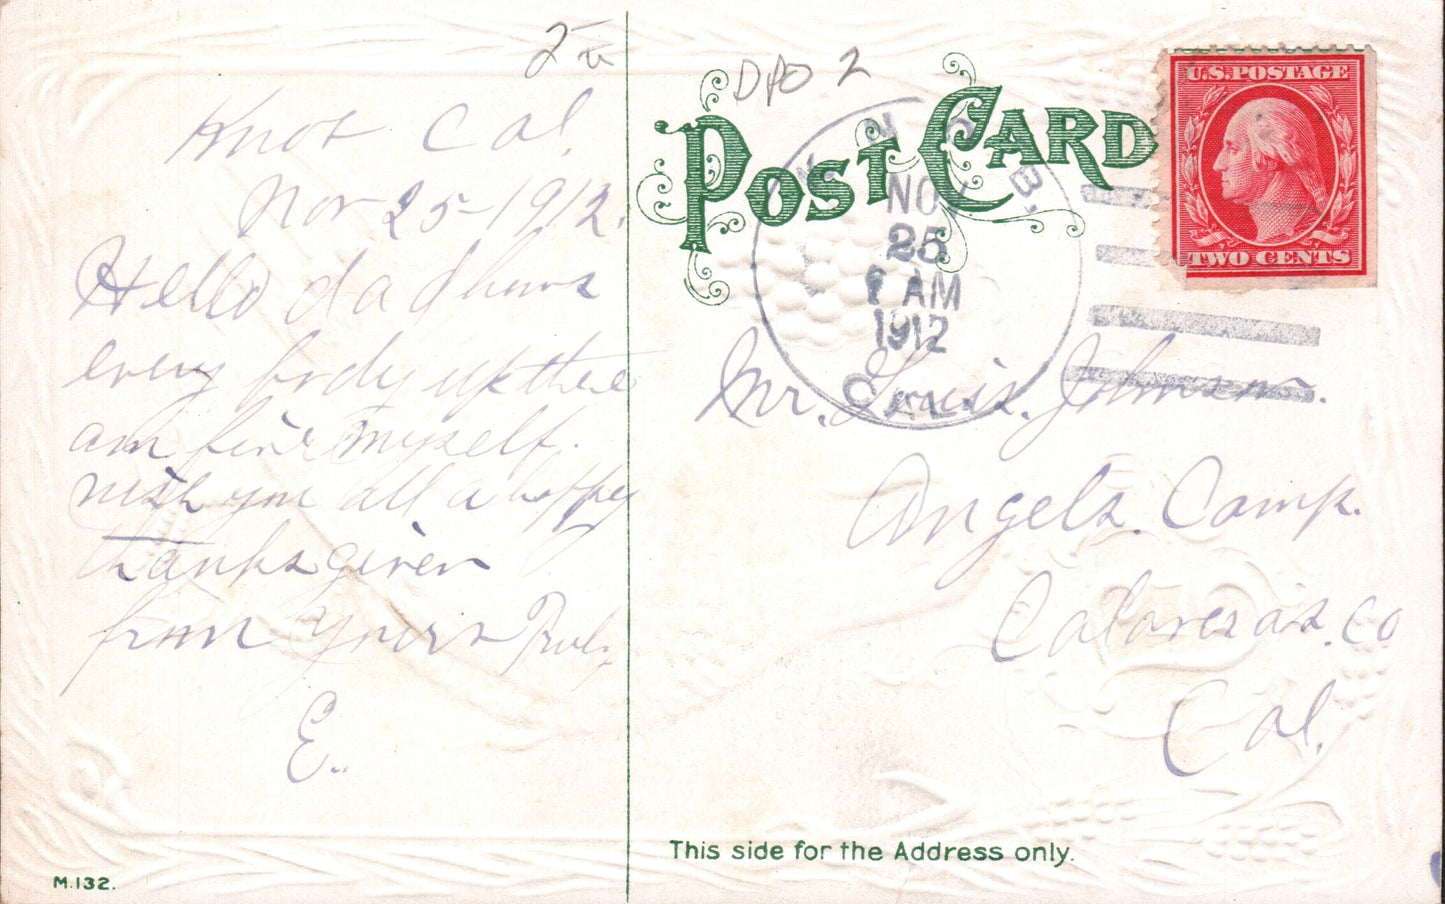 2
DPO 2
POST CARD
U.S. POSTAGE
TWO CENTS
NOV
25
AM
1912
CAL.
Knob Cal.
Nov 25-1912.
Hello dad
every body up there
am fine myself.
wish you all a happy
thanksgiven
from yours
E.
Mr. Louis. Johnson.
Angels. Camp.
Calaveras. Co
Cal.
This side for the Address only.
M.132.